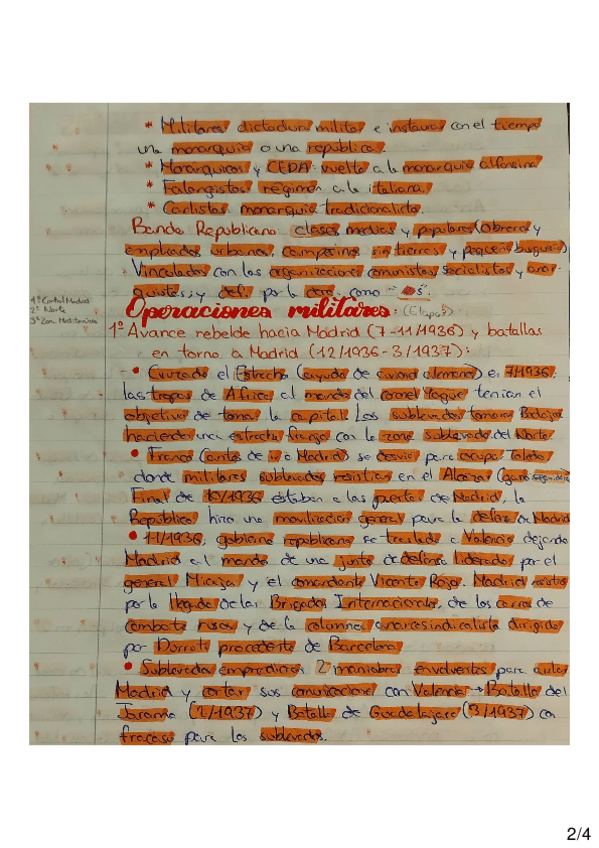 * Militares dictadura militar e instaurar con el tiempo
una monarquía o una república.
* Monarquicos y CEDA: vuelta a la monarquía alfonsina
* Falangistas régimen a la italiana.
* Carlistas monarquía tradicionalista.
Bando Republicano clases medias y populares (obreros y
empleados urbanos, campesinos sin tierras y pequeña burguesía)
Vinculados con las organizaciones comunistas, socialistas y anar-
quistas; y def. por la dem. como
1º Central Madrid
2º Norte
3º Zon. Mediterránea
Operaciones militares: (Etapas)
1º Avance rebelde hacia Madrid (7-11/1936) y batallas
en torno a Madrid (12/1936-3/1937):
• Cruzado el Estrecho (ayuda de aviones alemanes) en 7/1936,
las tropas de África al mando del coronel Yague tenían el
objetivo de tomar la capital. Los sublevados tomaron Badajoz
haciendo una estrecha franja con la zona sublevada del Norte.
• Franco (antes de ir a Madrid) se desvía para ocupar Toledo
donde militares sublevados resistían en el Alcázar
Final de 10/1936 estaban a las puertas de Madrid, la
República hizo una movilización general para la defensa de Madrid
• 11/1936, gobierno republicano se traslada a Valencia dejando
Madrid al mando de una junta de defensa liderada por el
general Miaja y el comandante Vicente Rojo. Madrid resistió
por la llegada de las Brigadas Internacionales, de los carros de
combate rusos y de la columna anarcosindicalista dirigida
por Durruti procedente de Barcelona
• Sublevados emprendieron 2 maniobras envolventes para aislar
Madrid y cortar sus comunicaciones con Valencia → Batalla del
Jarama (2/1937) y Batalla de Guadalajara (3/1937) con
fracaso para los sublevados.
2/4